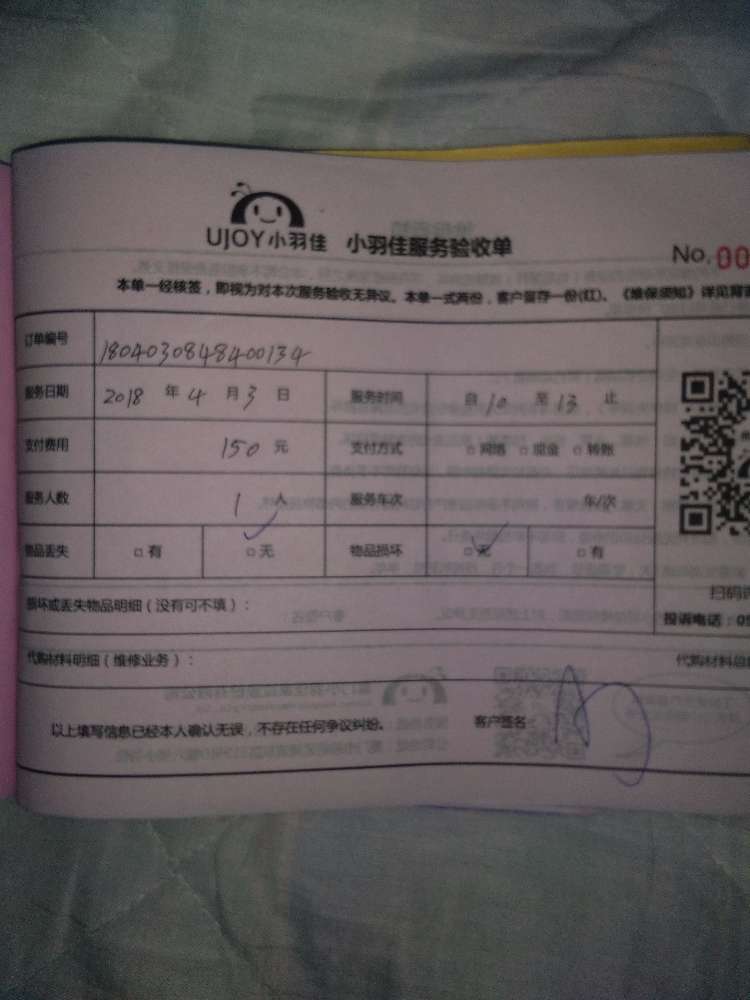 UJOY小羽佳 小羽佳服务验收单
No. 00
本单一经核签，即视为对本次服务验收无异议。本单一式两份，客户留存一份(红)。《维保须知》详见背
订单编号 1804030848400134
服务日期 2018 年 4 月 3 日 服务时间 自 10 至 13 止
支付费用 150 元 支付方式 □ 网络 □ 现金 □ 转账
服务人数 1 人 服务车次 车/次
物品丢失 □ 有 □ 无 物品损坏 □ 无 □ 有
损坏或丢失物品明细（没有可不填）：
扫码
投诉电话：05
代购材料明细（维修业务）： 代购材料总
以上填写信息已经本人确认无误，不存在任何争议纠纷。 客户签名：